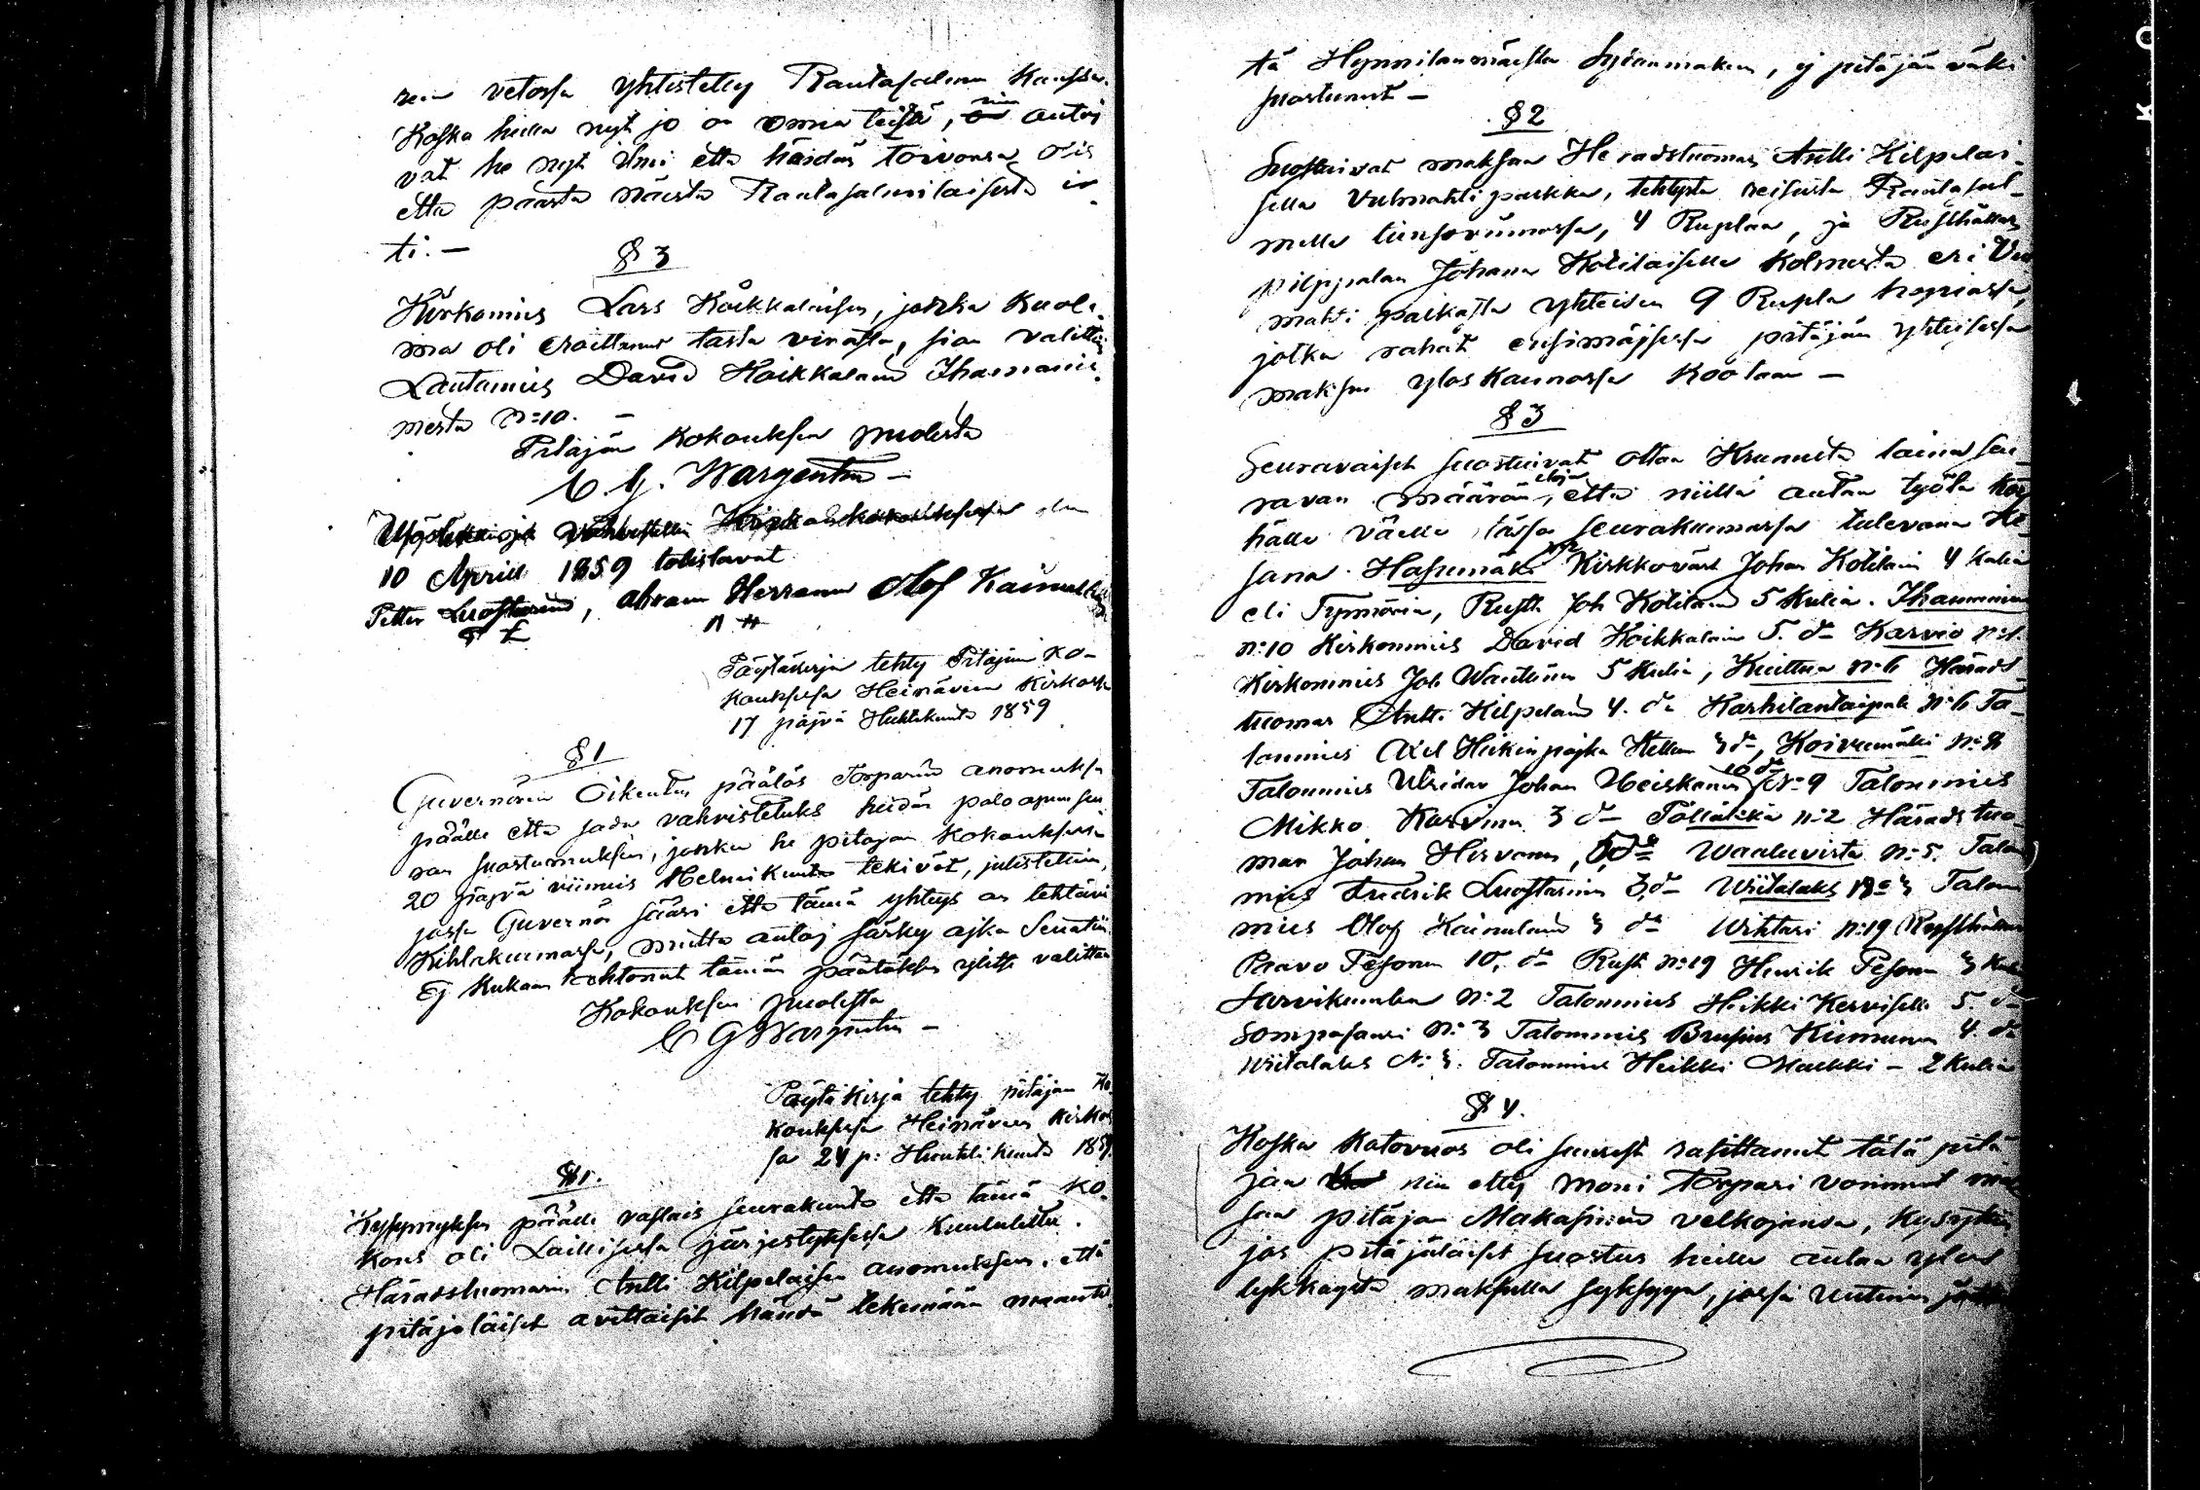 sen vetossa yhtistetty Rautasalmen kanssa.
Koska heille nyt jo on oma teistä, niin antoi
vat he nyt ilmi että heidän toivonsa olis
että päästä näistä Rautasalmilaisesta ir
ti. —
§ 3
Kirkomies Lars Koikkalaisen, jonka kuole
ma oli eroittanut tästä virasta, sian valittin
Lautamies David Koikkalainen Ihamanie
mestä N:10. —
Pitäjän kokouksen puolesta
C. G. Wargentin —
Ylöskirjoitet vahvistettu Kirkonkokouksessa den
10 Aprill 1859 todistavat
Petter Luostarinen, Abram Herranen Olof Kainulainen
Pöytäkirja tehty Pitäjän ko-
kouksessa Heinäveen Kirkossa
17 päivä Huhtikuuta 1859
§ 1
Guvernörin Oikeutus päätös Torparien anomuksen
päälle että saada vahvistetuks heidän palo apunsen
san suostumuksen, jonka he pitäjän kokouksessa
20 päjvä viimeis Helmikuuta tekivät, julistettiin,
jossa Guvernör sääsi että tämä yhteys on tehtävä
Kihlakunnassa, mutta antoj särky ajka Senatiin
Ej kukaan tahtonut tämän päätöksen ylitse valittaa
Kokouksen puolesta
C G Wargentin —
Pöytäkirja tehty pitäjän Ko
kouksessa Heinäveen kirkos
sa 24 p: Huhtikuuta 1859
§ 1.
Kysymyksen päälle vastais seurakunta että tämä ko-
kous oli Laillisessa järjestyksessä kuulutettu.
Häradstuomarin Antti Kilpelaisen anomuksen, että
pitäjäläiset avittaisit händä tekemään maantie
tä Hynnilanmäestä Sydänmaken, ej pitäjän väki
suostunut —
§ 2
Suostuivat maksaa Heradstuomari Antti Kilpelai-
sella Vulmahti palkka, tehtystä reisusta Rautasal-
melle tiinsovinnossa, 4 Ruplaa, ja Rusthållari
pilppalan Johana Kotilaiselle kolmesta eri Vul
mahti palkasta yhteisen 9 Rupla hopiassa,
jotka rahat ensimäjsessä pitäjän yhteisessä
maksun yloskannossa koötaan —
§ 3
Seuravaiset suostuivat ottaa Krunusta laina seu-
ravan määrän eloja, että niillä antaa työtä köy
hälle väelle tässä seurakunnassa tulevana Ke-
sänä. Hasumäki Kirkkovärt Johan Kotilain 4 kulia
eli Tynnöria, Rusth. Joh Kotilainen 5 Kulia. Ihamaniemi
N:10 Kirkomies David Koikkalain 5. do Karvio N:1.
Kirkomies Joh Wäntinen 5 Kulia, Kuittua N:6 Härads-
tuomar Antti Kilpelainen 4. do Karhilantaipale N:6 Ta-
lonmies Axel Heikinpojka Hellen 3 do, Koivumäki N:8
Talonmies Ulrider Johan Heiskanen 10 do N:9 Talonmies
Mikko Karvinen 3 do Pöllakkä N:2 Härads tuo-
mar Johan Hirvonen, 5 do Waaluvirta N:5. Talon
mies Fredrik Luostarinen 3 do Wiitalaks N:3 Talon
mies Olof Kainulainen 3 do Wihtari N:19 Rusthållari
Paavo Pesonen 10, do Rusth N:19 Henrik Pesonen 3 Kulia
Sarvikumbu N:2 Talonmies Heikki Kerviselle 5. do
Sompasaari N:3 Talonmies Brusius Kiimunen 4. do
Wiitalaks N:3. Talonmies Heikki Malkki — 2 Kulia
§ 4.
Koska katovuos oli suuresti rasittanut tätä pitä
jän niin ettej moni Torpari voinnut ma
saa pitäjän Makasinin velkojansa, kysyttin
jos pitäjäläiset suostus heille antaa ylös
lykkäystä maksulla syksyyn, jossa uutinen